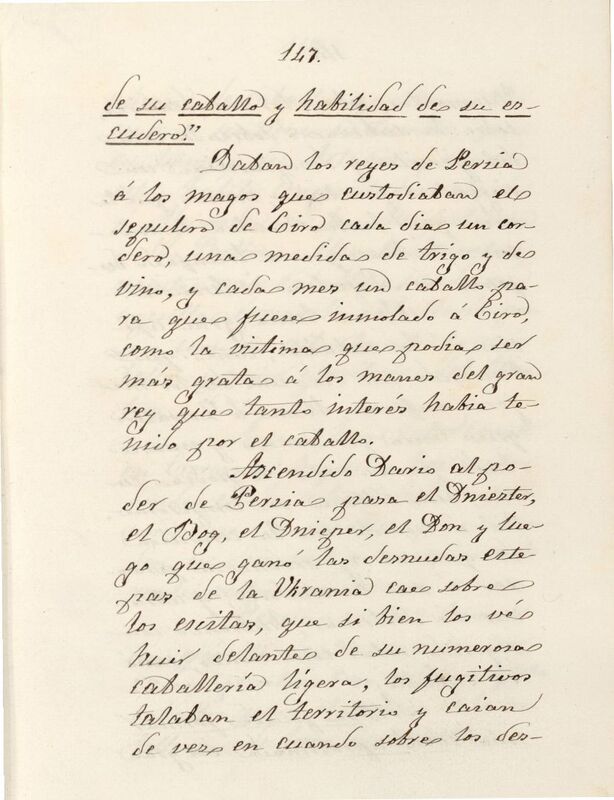 147.
de su caballo y habilidad de su es-
cudero."
Daban los reyes de Persia
á los magos que custodiaban el
sepulcro de Ciro cada dia un cor-
dero, una medida de trigo y de
vino, y cada mes un caballo pa-
ra que fuese inmolado á Ciro,
como la victima que podia ser
más grata á los manes del gran
rey que tanto interés habia te-
nido por el caballo.
Ascendido Dario al po-
der de Persia pasa el Dniester,
el Bog, el Dnieper, el Don y lue-
go que ganó las desnudas este
pas de la Ukrania cae sobre
los escitas, que si bien los vé
huir delante de su numerosa
caballería lígera, los fugitivos
talaban el territorio y caian
de vez en cuando sobre los des-